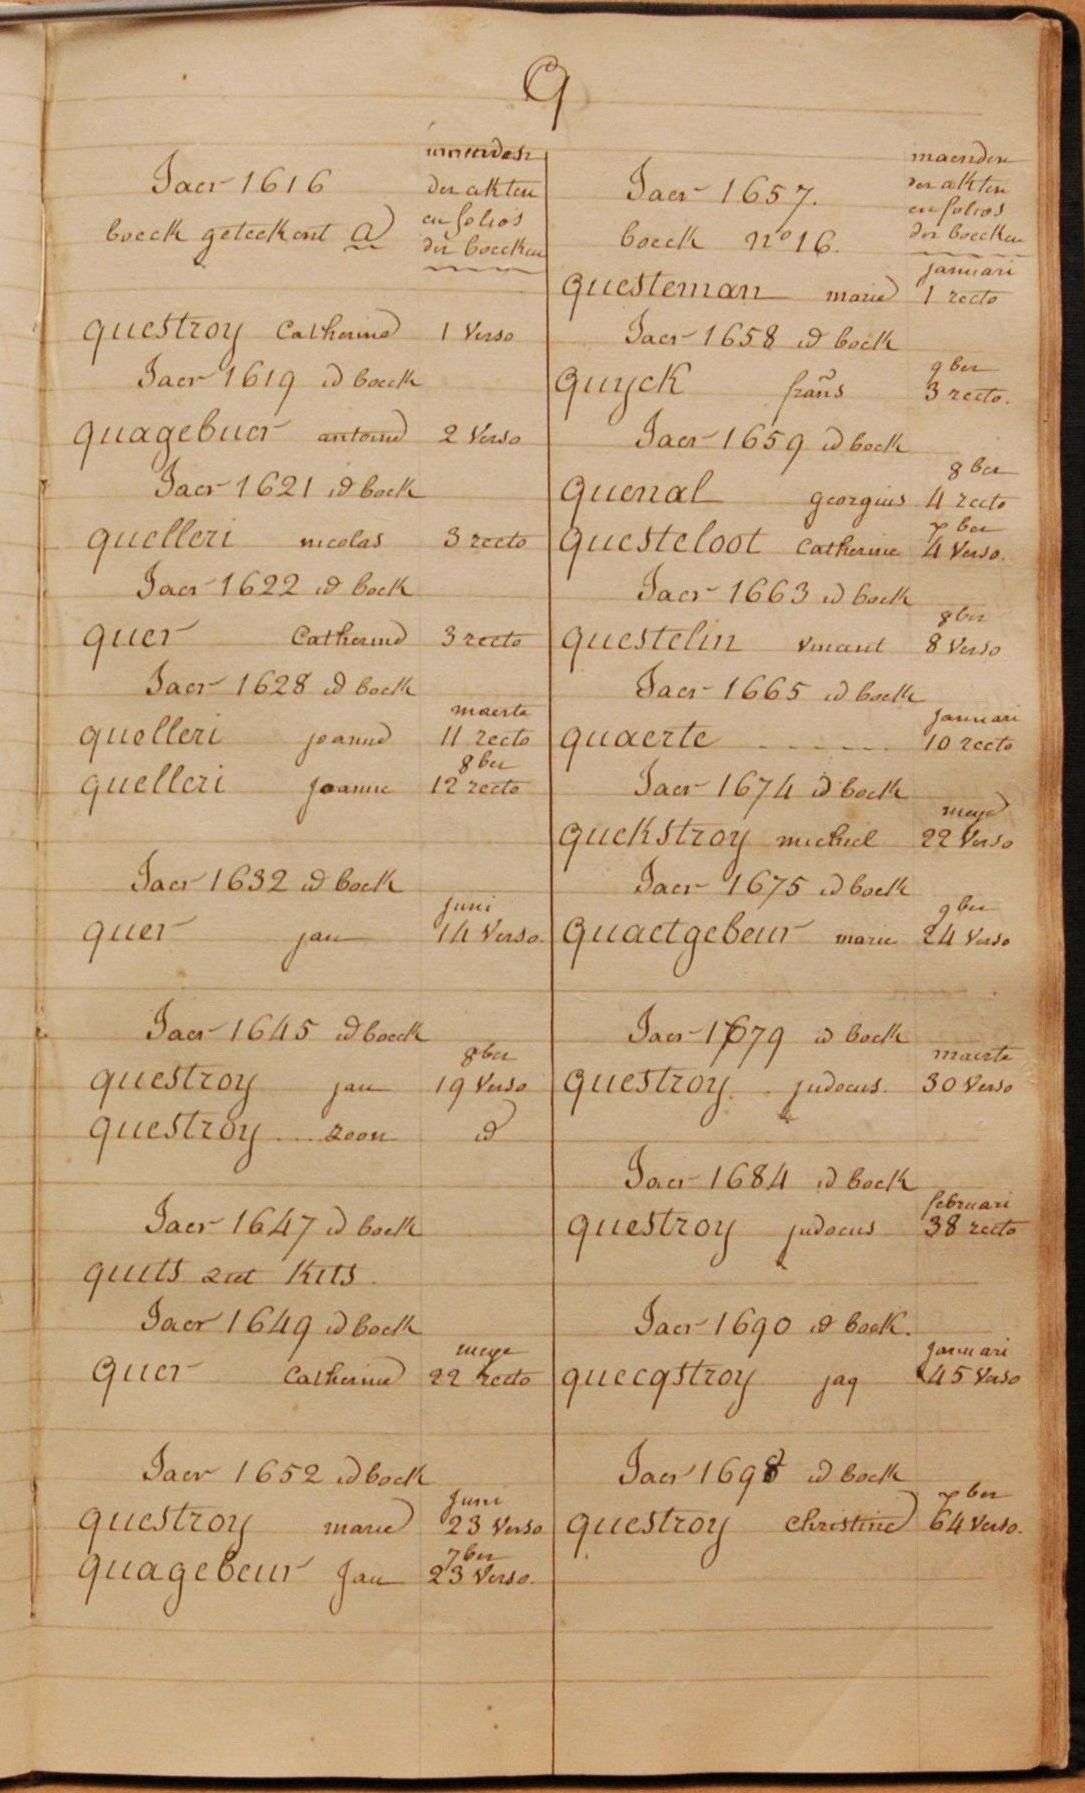 Q
maenden
Jaer 1616 der akten
en folios
boeck geteekent a der boecken
questroy Catherine 1 Verso
Jaer 1619 id boeck
quagebuer antoine 2 Verso
Jaer 1621 id boek
quelleri nicolas 3 recto
Jaer 1622 id boek
quer Catherine 3 recto
Jaer 1628 id boek
maerte
quelleri joanne 11 recto
8ber
quelleri joanne 12 recto
Jaer 1632 id boek
juni
quer jan 14 Verso.
Jaer 1645 id boeck
8ber
questroy jan 19 Verso
questroy ... zoon id
Jaer 1647 id boek
quits ziet Kits.
Jaer 1649 id boek
meye
quer Catherine 22 recto
Jaer 1652 id boek
Juni
questroy marie 23 Verso
7ber
quagebeur Jan 23 Verso.
maenden
Jaer 1657. der akten
en folios
boeck no 16. der boecken
januari
questeman marie 1 recto
Jaer 1658 id boek
9ber
quyck frans 3 recto.
Jaer 1659 id boek
8ber
quenal georgius 4 recto
7ber
questeloot Catherine 4 Verso.
Jaer 1663 id boek
8ber
questelin vincent 8 Verso
Jaer 1665 id boek
januari
quaerte ...... 10 recto
Jaer 1674 id boek
meye
quekstroy michiel 22 Verso
Jaer 1675 id boek
9ber
quaetgebeur marie 24 Verso
Jaer 1679 id boek
maerte
questroy.. judocus. 30 Verso
Jaer 1684 id boek
februari
questroy judocus 38 recto
Jaer 1690 id boek.
januari
quecqstroy jaq 45 Verso
Jaer 1698 id boek
7ber
questroy Christine 64 Verso.